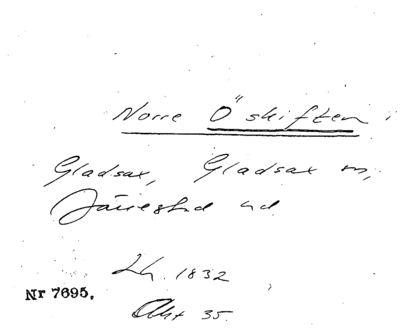 Norre Ö skiften i
Gladsax, Gladsax m,
Järrestad hd
Lh. 1832
Nr 7695.
Akt 35.